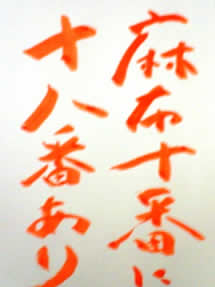 麻布十番に
十八番あり